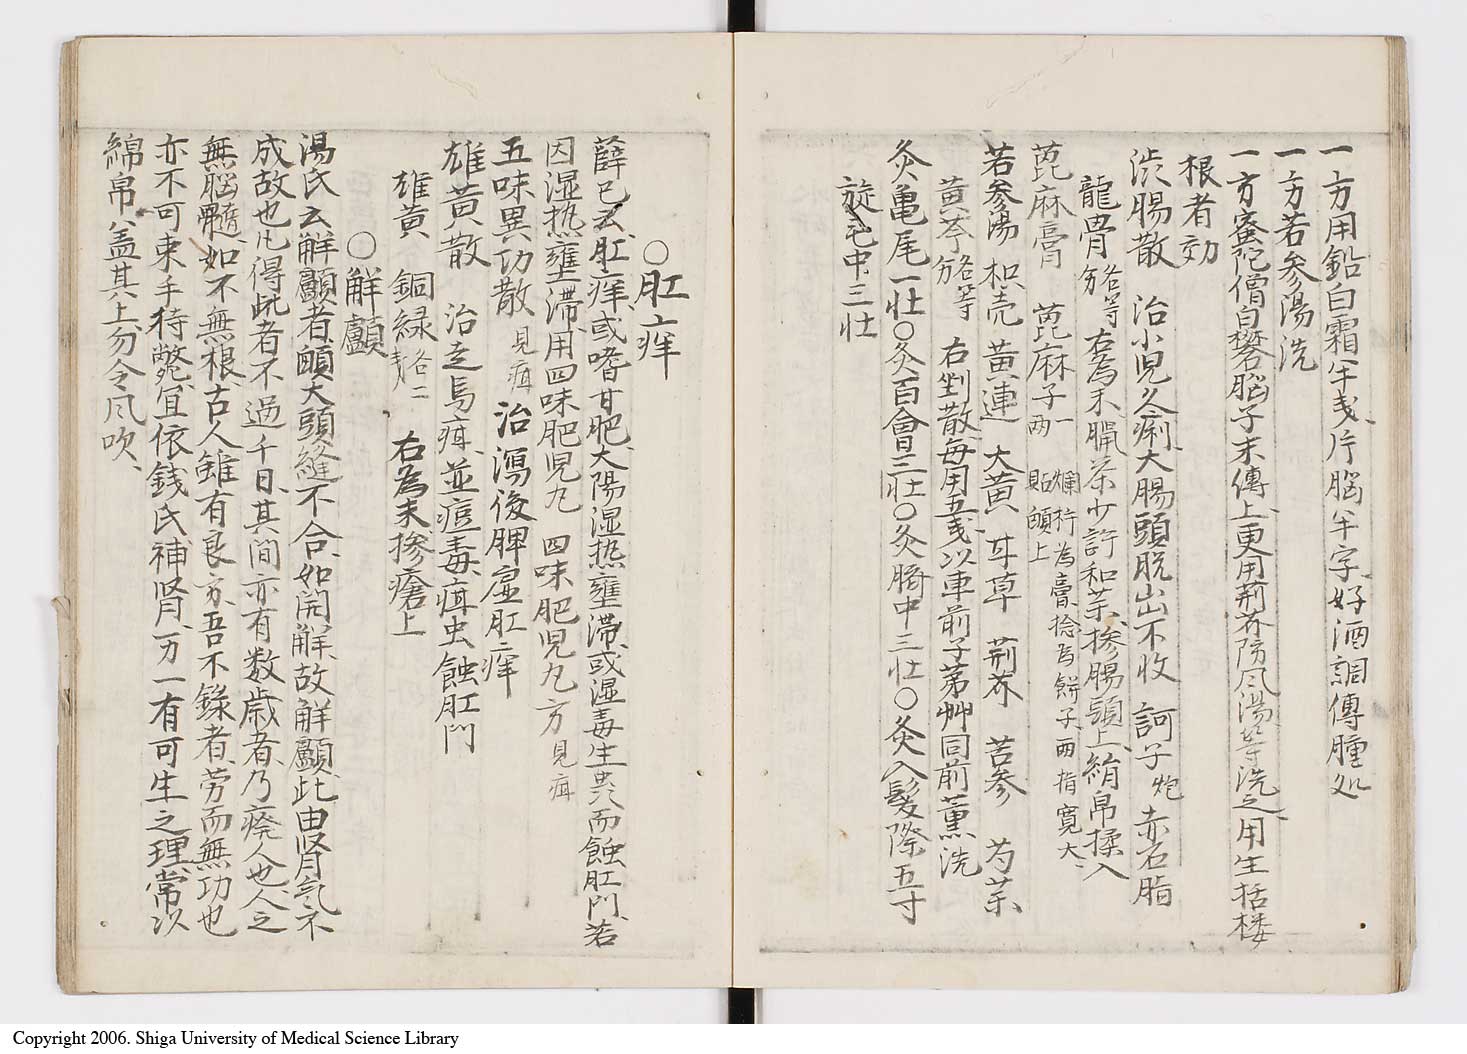 一方用鉛白霜半戔片脳半字好酒調傅腫処
一方若参湯洗
一方蜜陀僧白礬脳子末傅上更用荊芥防風湯等洗之用生括楼
根者効
渋腸散 治小児久痢大腸頭脱出不收 訶子炮 赤石脂
龍骨各等分 右為末臘茶少許和茶掺腸頭上絹帛揉入
萞麻膏 萞麻子一両 爛杵為膏捻為餅子両指寛大
貼顖上
若参湯 枳壳 黄連 大黄 甘草 荊芥 苦参 芍茶
黄芩各等分 右剉散毎用五戔以車前子茅艸同前薫洗
灸亀尾一壮○灸百會三壮○灸臍中三壮○灸入髪際五寸
旋毛中三壮
○肛痒
薛巳云肛痒或嗜甘肥大陽湿热壅滞或湿毒生虫而蝕肛門若
因湿热壅滞用四味肥児丸 四味肥児丸方見疳
五味異功散見疳 治瀉後脾虚肛痒
雄黄散 治走馬疳並痘毒疳虫蝕肛門
雄黄 銅緑各二戔 右為末掺瘡上
○解顱
湯氏云解顱者顖大頭縫不合如開解故解顱此由肾氣不
成故也凡得此者不過千日其間亦有数歳者乃癈人也人之
無脳髄如不無根古人雖有良方吾不錄者劳而無功也
亦不可束手待斃宜依銭氏補肾万一有可生之理常以
綿帛盖其上勿令风吹